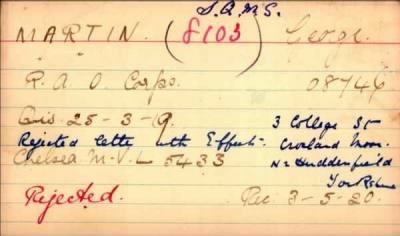 S.Q.M.S.
MARTIN. (8103) George.
R.A.O. Corps. 08746
Dis. 25-3-19. 3 College St
Rejected letter with Effects. Crosland Moor.
Chelsea M.V.L 5433 Nr Huddersfield
Yorkshire
Rejected. Rec. 3-5-20.